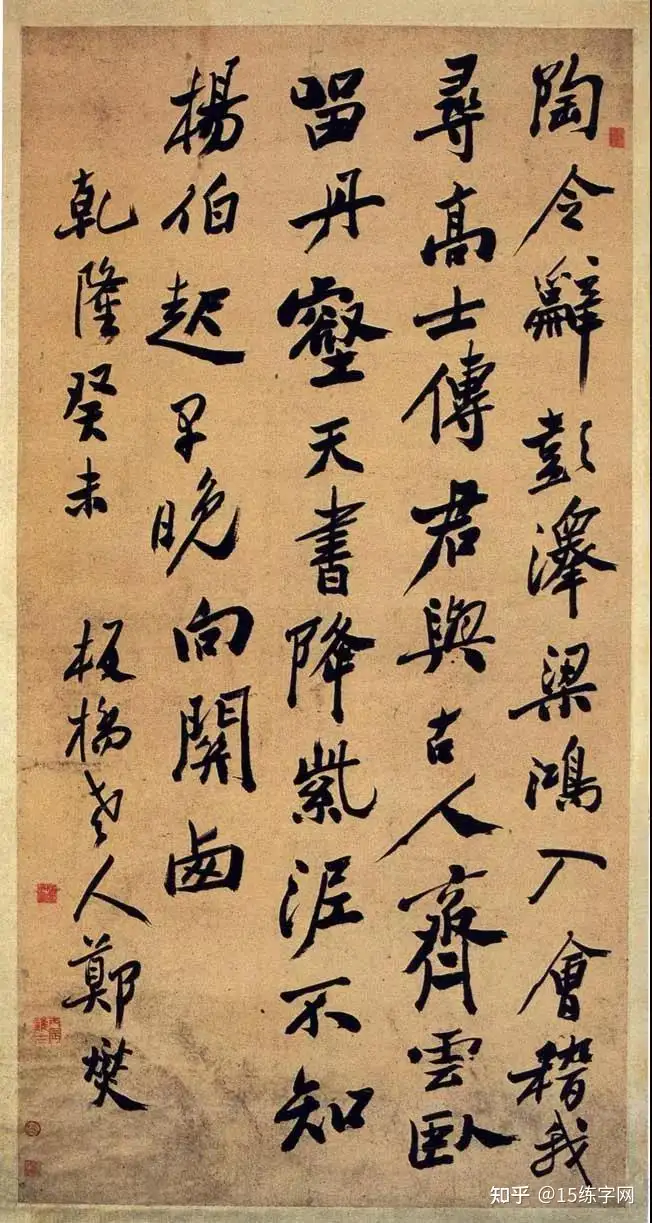 陶令辭彭澤梁鴻入會稽我
尋高士傳君與古人齊雲臥
留丹壑天書降紫泥不知
楊伯起早晚向關卥
乾隆癸未 板橋老人鄭燮
知乎 @15练字网